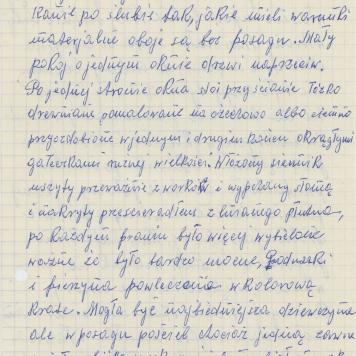 kanie po ślubie tak, jakie mieli warunki
materjalne oboje są bez posagu. Mały
pokój o jednym oknie drzwi naprzeciw.
Po jednej stronie okna stoi przy ścianie łóżko
drewniane pomalowane na orzechowo albo ciemno
przyozdobione w jednym i drugim końcu okrągłymi
gałeczkami różnej wielkości. Włożony siennik
uszyty przeważnie z worków i wypchany słomą
i nakryty prześcieradłem z lnianego płutna,
po każdym praniu było więcej wybielone
ważne że było bardzo mocne, Poduszki
i pierzyna powleczona w kolorową
kratę. Mogła być najbiedniejsza dziewczyna
ale w posagu pościel chociaż jedną